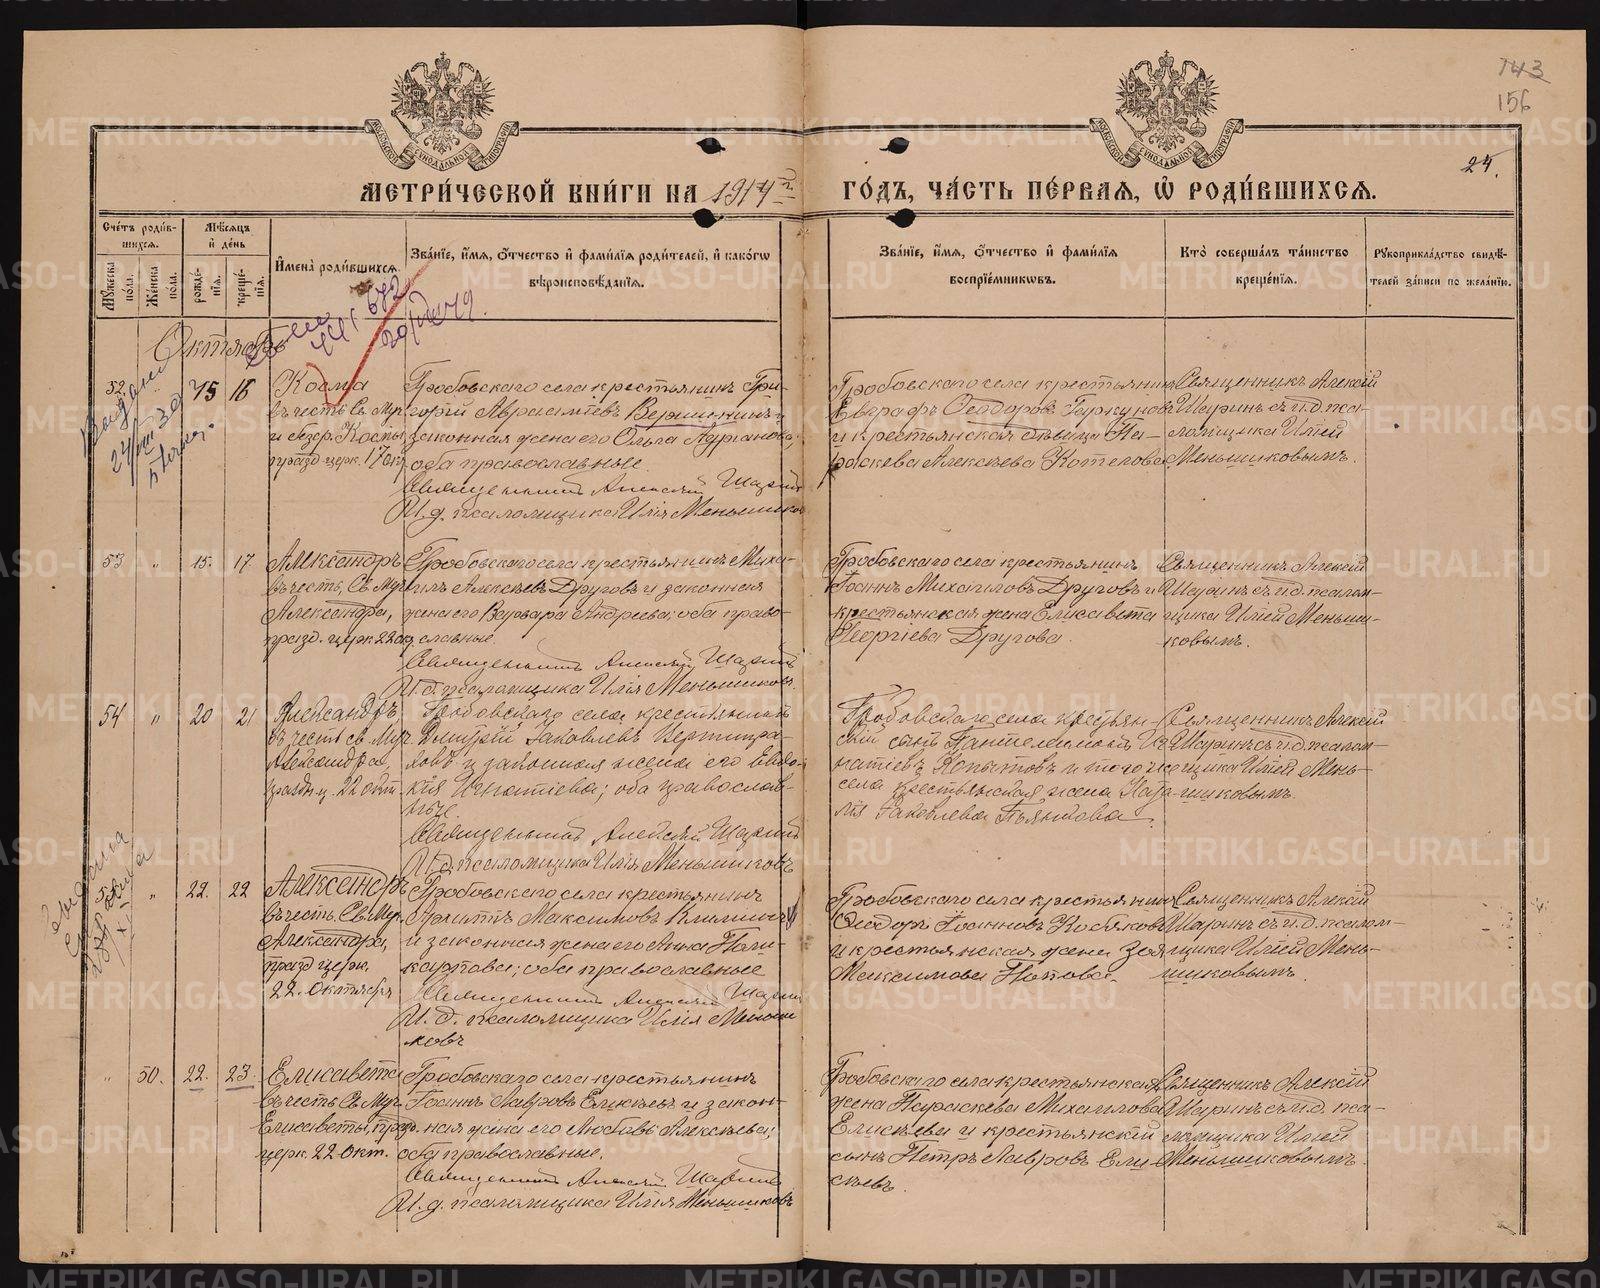 143
156
24.
МОСКОВСКОЙ СѴНОДАЛЬНОЙ ТИПОГРАФІИ
МОСКОВСКОЙ СѴНОДАЛЬНОЙ ТИПОГРАФІИ
МЕТРИ́ЧЕСКОЙ КНИ́ГИ НА 1914 г. ГО́ДЪ, ЧА́СТЬ ПЕ́РВАЯ, Ѡ РОДИ́ВШИХСѦ.
Сче́тъ роди́вшихся.
Му́жеска по́ла.
Же́нска по́ла.
Мѣ́сяцъ и́ де́нь
рожде́нїя.
креще́нїя.
И҆мена̀ роди́вшихся.
Зва́нїе, и҆́мя, ѻ҆́тчество и҆ фами́лїя роди́телей, и҆ како́гѡ
вѣроисповѣ́данїя.
Зва́нїе, и҆́мя, ѻ҆́тчество и҆ фами́лїя
воспрїе́мниковъ.
Кто̀ соверша́лъ та́инство
креще́нїя.
Рꙋкоприкла́дство свидѣ́-
телей за́писи по жела́нїю.
Октябрь
52. 15 16
Косма
въ честь Св. Муч.
и безср. Космы,
празд. церк. 17 окт.
Гробовскаго села крестьянинъ Гри-
горій Аврааміевъ Вершининъ и
законная жена его Ольга Адрианова,
оба православные.
Священникъ Алексій Шаринъ
И. д. псаломщика Илія Меньшиковъ
Гробовскаго села крестьянинъ
Евграфъ Ѳеодоровъ
и крестьянская дѣвица Па-
раскева Алексѣева Котелова
Священникъ Алексій
Шаринъ съ и. д. пса-
ломщика Иліей
Меньшиковымъ.
53 " 15. 17.
Александръ
въ честь Св. Муч.
Александра,
празд. церк. 22 окт.
Гробовскаго села крестьянинъ Миха-
илъ Алексѣевъ Друговъ и законная
жена его Варвара Андреева, оба право-
славные.
Священникъ Алексій Шаринъ
И. д. псаломщика Илія Меньшиковъ.
Гробовскаго села крестьянинъ
Іоаннъ Михаиловъ Друговъ и
крестьянская жена Елисавета
Георгіева Другова.
Священникъ Алексій
Шаринъ съ и. д. псалом-
щика Иліей Меньши-
ковымъ.
54 " 20 21
Александръ
въ честь св. муч.
Александра,
праздн. ц. 22 окт.
Гробовскаго села крестьянинъ
Димитрій Іаковлевъ Вертипра-
ховъ и законная жена его Евдо-
кія Игнатіева; оба православ-
ные.
Священникъ Алексій Шаринъ
И. д. псаломщика Илія Меньшиковъ
Гробовскаго села крестьян-
скій сынъ Пантелеимонъ Иг-
натіевъ Копытовъ и того же
села крестьянская жена Ната-
лія Іаковлева Пьянкова.
Священникъ Алексій
Шаринъ съ и. д. псалом-
щика Иліей Мень-
шиковымъ.
55 " 22. 22
Александръ
въ честь Св. Муч.
Александра,
празд. церк.
22. октября
Гробовскаго села крестьянинъ
Максимовъ Климинъ
и законная жена его Анна Поли-
карпова; оба православные
Священникъ Алексій Шаринъ
И. д. псаломщика Илія Меньши-
ковъ
Гробовскаго села крестьянинъ
Ѳеодоръ Іоанновъ Косяковъ
и крестьянская жена Зоя
Максимова Попова.
Священникъ Алексій
Шаринъ съ и. д. псалом-
щика Иліей Мень-
шиковымъ.
" 50. 22. 23.
Елисавета
въ честь Св. Муч.
Елисаветы, празд.
церк. 22 окт.
Гробовскаго села крестьянинъ
Іоаннъ Лавровъ Елисѣевъ и закон-
ная жена его Любовь Алексѣева;
оба православные.
Священникъ Алексій Шаринъ
И. д. псаломщика Илія Меньшиковъ
Гробовскаго села крестьянская
жена Параскева Михаилова
Елисѣева и крестьянскій
сынъ Петръ Лавровъ Ели-
сѣевъ.
Священникъ Алексій
Шаринъ съ и. д. пса-
ломщика Иліей
Меньшиковымъ.